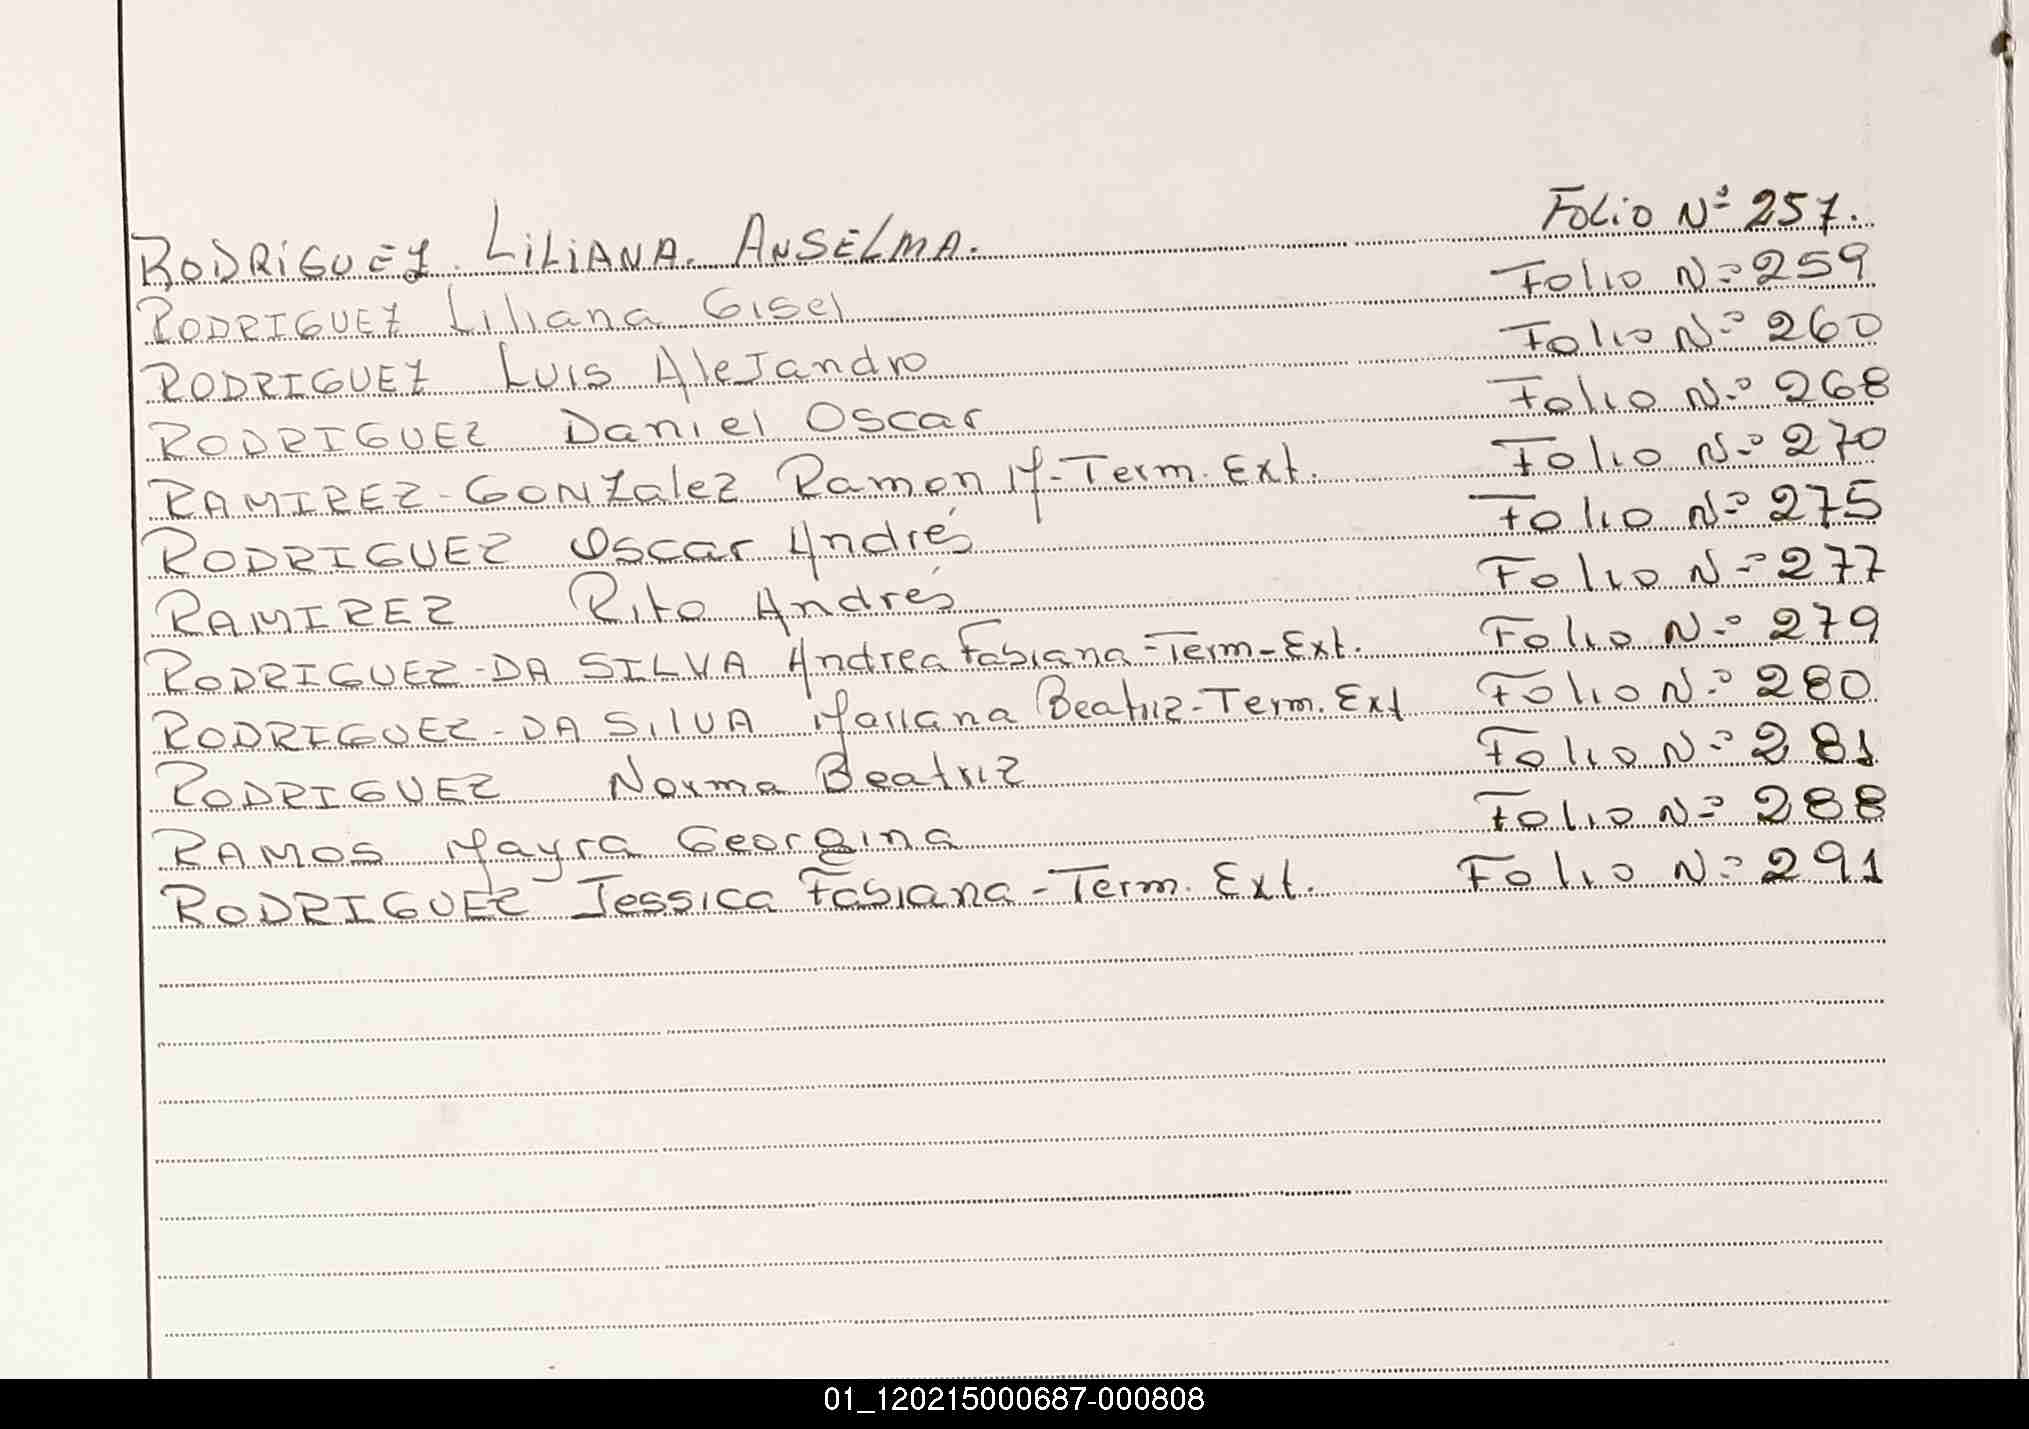 RODRÍGUEZ. LILIANA. ANSELMA. Folio Nº 257.
RODRIGUEZ Liliana Gisel Folio Nº 259
RODRIGUEZ Luis Alejandro Folio Nº 260
RODRIGUEZ Daniel Oscar Folio Nº 268
RAMIREZ-GONZalez Ramon M-Term. Ext. Folio Nº 270
RODRIGUEZ Oscar Andrés Folio Nº 275
RAMIREZ Rito Andrés Folio Nº 277
RODRIGUEZ-DA SILVA Andrea Fabiana-Term-Ext. Folio Nº 279
RODRIGUEZ-DA SILVA Mariana Beatriz-Term. Ext Folio Nº 280
RODRIGUEZ Norma Beatriz Folio Nº 281
RAMOS Mayra Georgina Folio Nº 288
RODRIGUEZ Jessica Fabiana-Term. Ext. Folio Nº 291
01_120215000687-000808